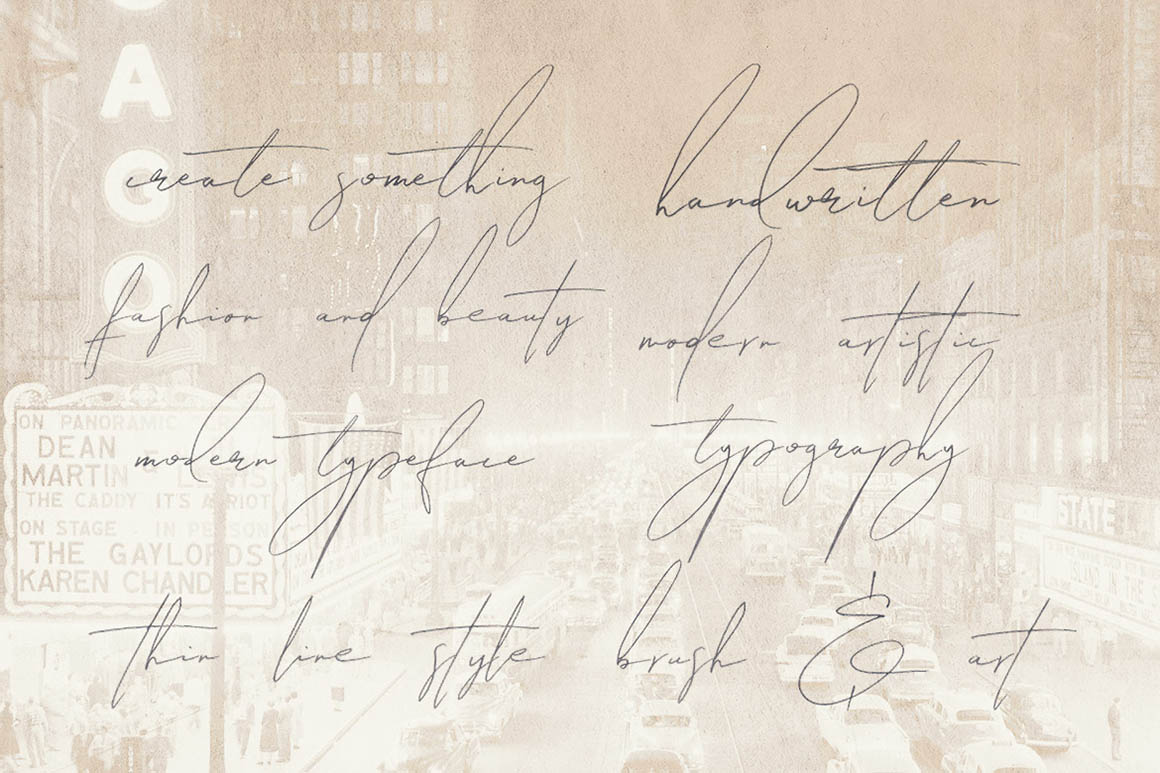 AGO
create something
handwritten
fashion and beauty
modern artistic
modern typeface
typography
thin line style
brush & art
ON PANORAMIC
DEAN
MARTIN
THE CADDY IT'S A RIOT
ON STAGE - IN PERSON
THE GAYLORDS
KAREN CHANDLER
STATE
ISLAND IN THE